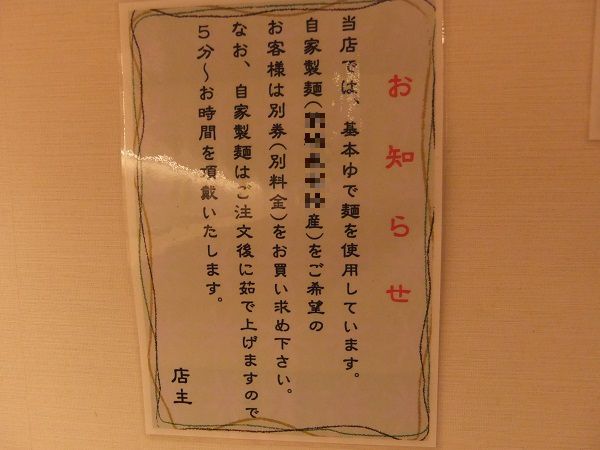 お知らせ
当店では、基本ゆで麺を使用しています。
自家製麺(産)をご希望の
お客様は別券(別料金)をお買い求め下さい。
なお、自家製麺はご注文後に茹で上げますので
5分～お時間を頂戴いたします。
店主